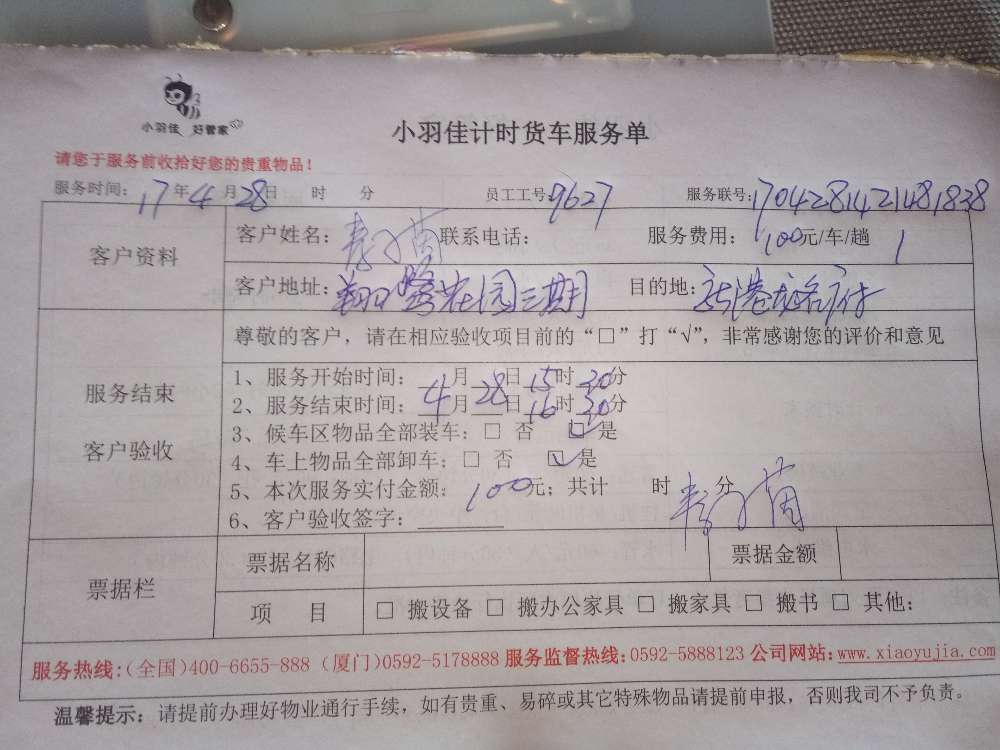 小羽佳 好管家
小羽佳计时货车服务单
请您于服务前收拾好您的贵重物品！
服务时间：17年4月28日 时 分 员工工号：9627 服务联号：1704281421481838
客户资料
客户姓名： 联系电话： 服务费用：100元/车/趟 1
客户地址： 花园三期 目的地：
服务结束
客户验收
尊敬的客户，请在相应验收项目前的“□”打“√”，非常感谢您的评价和意见
1、服务开始时间：4月28日15时30分
2、服务结束时间：4月28日16时30分
3、候车区物品全部装车：□ 否 ☑ 是
4、车上物品全部卸车：□ 否 ☑ 是
5、本次服务实付金额：100元；共计 时 分
6、客户验收签字：
票据栏
票据名称 票据金额
项 目 □ 搬设备 □ 搬办公家具 □ 搬家具 □ 搬书 □ 其他：
服务热线：(全国)400-6655-888 (厦门)0592-5178888 服务监督热线：0592-5888123 公司网站：www.xiaoyujia.com
温馨提示：请提前办理好物业通行手续，如有贵重、易碎或其它特殊物品请提前申报，否则我司不予负责。